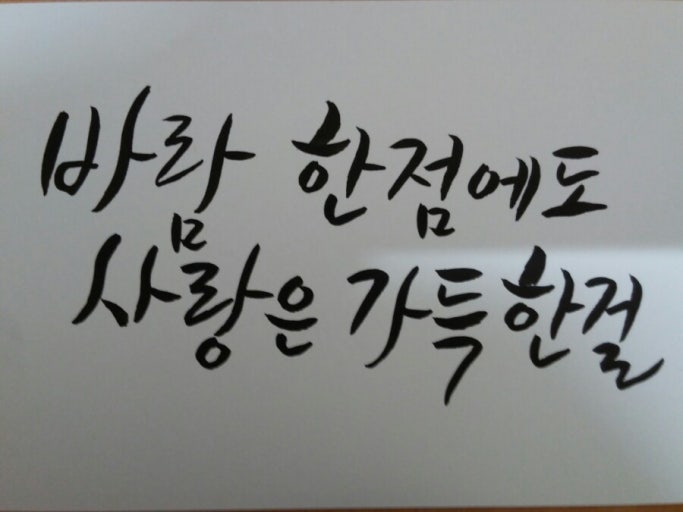 바람 한점에도
사랑은 가득한걸